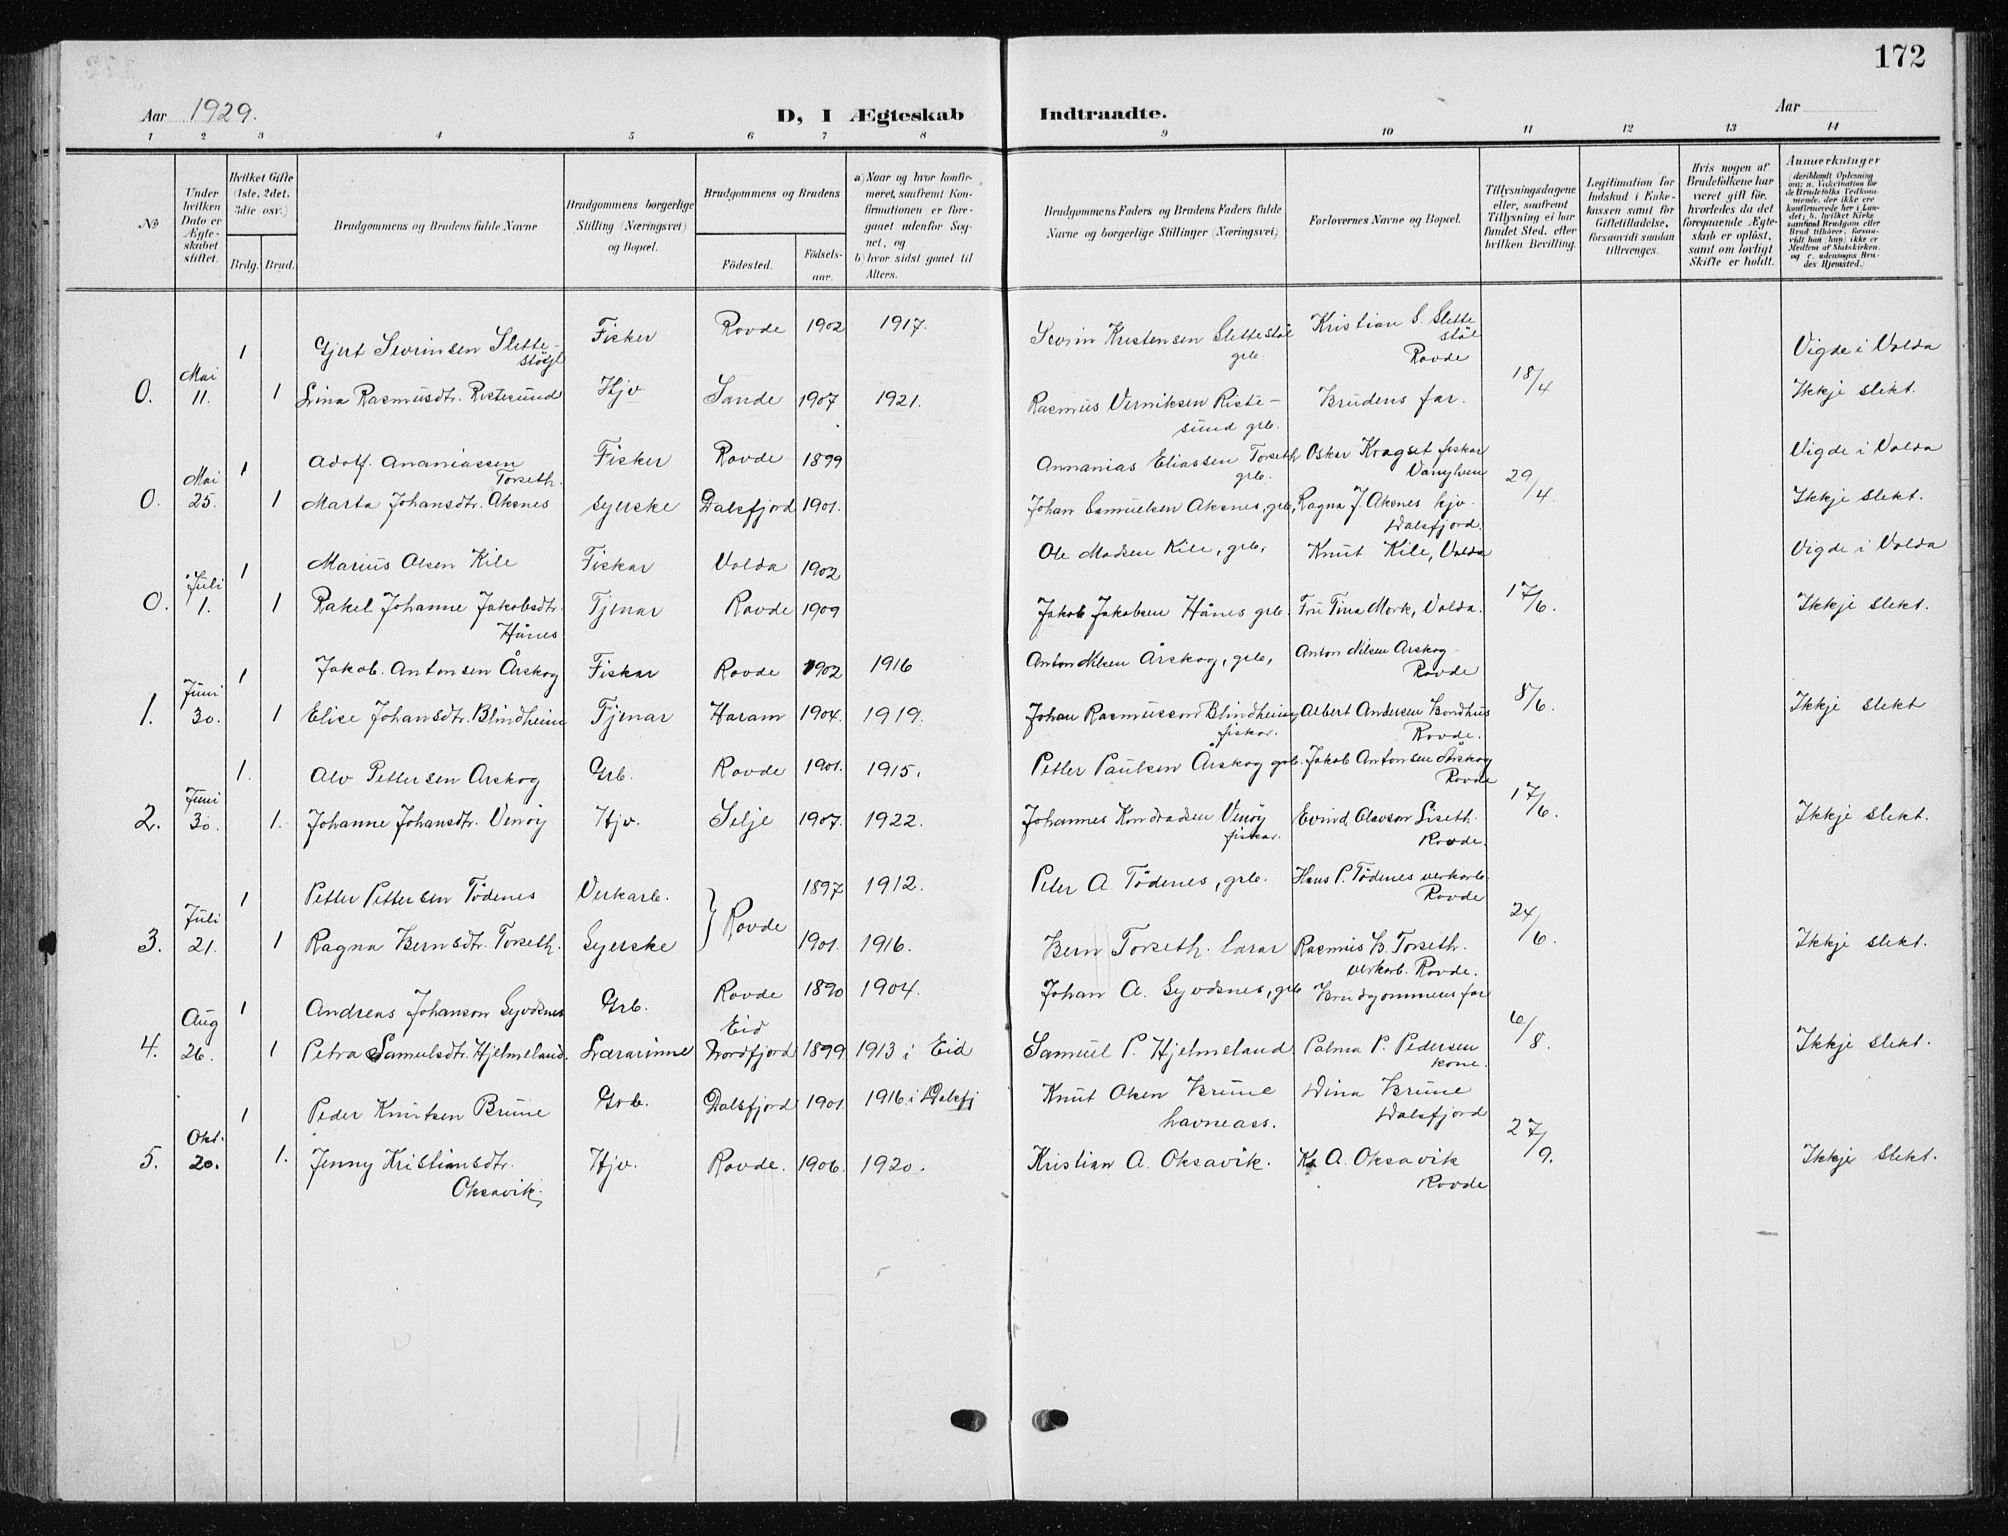 172
Aar 1929.
D, I Ægteskab Indtraadte.
Aar
1 2 3 4 5 6 7 8 9 10 11 12 13 14
No
Under hvilken Dato er Ægteskabet stiftet.
Hvilket Gifte (1ste, 2det, 3die osv.)
Brdg. Brud.
Brudgommens og Brudens fulde Navne
Brudgommens borgerlige Stilling (Næringsvei) og Bopæl.
Brudgommens og Brudens
Fødested.
Fødselsaar.
a) Naar og hvor konfirmeret, saafremt Konfirmationen er foregaaet udenfor Sognet, og
b) hvor sidst gaaet til Alters.
Brudgommens Faders og Brudens Faders fulde Navne og borgerlige Stillinger (Næringsvei)
Forlovernes Navne og Bopæl.
Tillysningsdagene eller, saafremt Tillysning ei har fundet Sted, efter hvilken Bevilling.
Legitimation for Indskud i Enkekassen samt for Giftetilladelse, forsaavidt saadan tiltrænges.
Hvis nogen af Brudefolkene har været gift før, hvorledes da det foregaaende Ægteskab er opløst, samt om lovligt Skifte er holdt.
Anmerkninger
(deriblandt Oplysning om: a. Vakcination for de Brudefolks Vedkommende, der ikke ere konfirmerede her i Landet; b. hvilket Kirkesamfund Brudgom eller Brud tilhører, forsaavidt han (hun) ikke er Medlem af Statskirken, og c. udensogns Brudes Hjemsted.)
1 Gjert Severinsen Slettestøyl Fisker Rovde 1902 1917. Severin Kristensen Slettestøl grb. Kristian S. Slettestøl Rovde Vigde i Volda
0. Mai 11. 1 Lina Rasmusdtr. Ristesund Hjv Sande 1907 1921. Rasmus Verniksen Ristesund grb. Brudens far. 18/4 Ikkje slekt.
1 Adolf Ananiassen Torseth. Fisker Rovde 1899 Annanias Eliassen Torseth grb. Oskar Kragset fiskar Vanylven Vigde i Volda
0. Mai 25. 1 Marta Johansdtr. Aksnes syerske Dalsfjord 1901. Johan Samuelsen Aksnes, grb. Ragna J. Aksnes hjv. Dalsfjord. 29/4 Ikkje slekt.
1 Marius Olsen Kile Fiskar Volda 1902 Ole Madsen Kile, grb. Knut Kile, Volda Vigde i Volda
0. Juli 1. 1 Rakel Johanne Jakobsdtr. Hånes Tjenar Rovde 1909 Jakob Jakobsen Hånes grb. Fru Tina Mork, Volda. 17/6. Ikkje slekt.
1 Jakob Antonsen Årskog Fiskar Rovde 1902 1916 Anton Nilsen Årskog, grb, Anton Nilsen Arskog Rovde
1. Juni 30. 1 Elise Johansdtr. Blindheim Tjenar Haram 1904. 1919. Johan Rasmusson Blindheim, fiskar. Albert Andersen Bondhus Rovde. 8/6. Ikkje slekt
1. Alv Pettersen Arskog Grb. Rovde 1901. 1915. Petter Paulsen Årskog grb. Jakob Antonsen Årskog Rovde
2. Juni 30. 1. Johanne Johansdtr. Venøy Hjv. Selje 1907. 1922. Johannes Kondradsen Venøy fiskar. Eivind Olavson Liseth. Rovde. 17/6. Ikkje slekt.
1 Petter Pettersen Tødenes Verkarb. Rovde 1897 1912. Peter A. Tødenes, grb. Hans P. Tødenes verkarb. Rovde
3. Juli 21. 1 Ragna Bernsdtr. Torseth. Syerske 1901. 1916. Bern Torseth. lærar Rasmus B. Torseth. verkarb. Rovde. 24/6. Ikkje slekt.
1 Andreas Johanson Syvdsnes Grb. Rovde 1890 1904. Johan A. Syvdsnes, grb Brudgommens far
4. Aug 26. 1 Petra Samuelsdtr. Hjelmeland. Lærarinne Eid Nordfjord 1899 1913 i Eid Samuel P. Hjelmeland Palma P. Pedersen kone. 6/8. Ikkje slekt.
1 Peder Knutsen Brune Grb. Dalsfjord 1901 1916 i Dalsfj Knut Olsen Brune havneass. Dina Brune Dalsfjord
5. Okt. 20. 1. Jenny Kristiansdtr. Oksavik. Hjv. Rovde. 1906. 1920. Kristian A. Oksavik. K. A. Oksavik Rovde 27/9. Ikkje slekt.